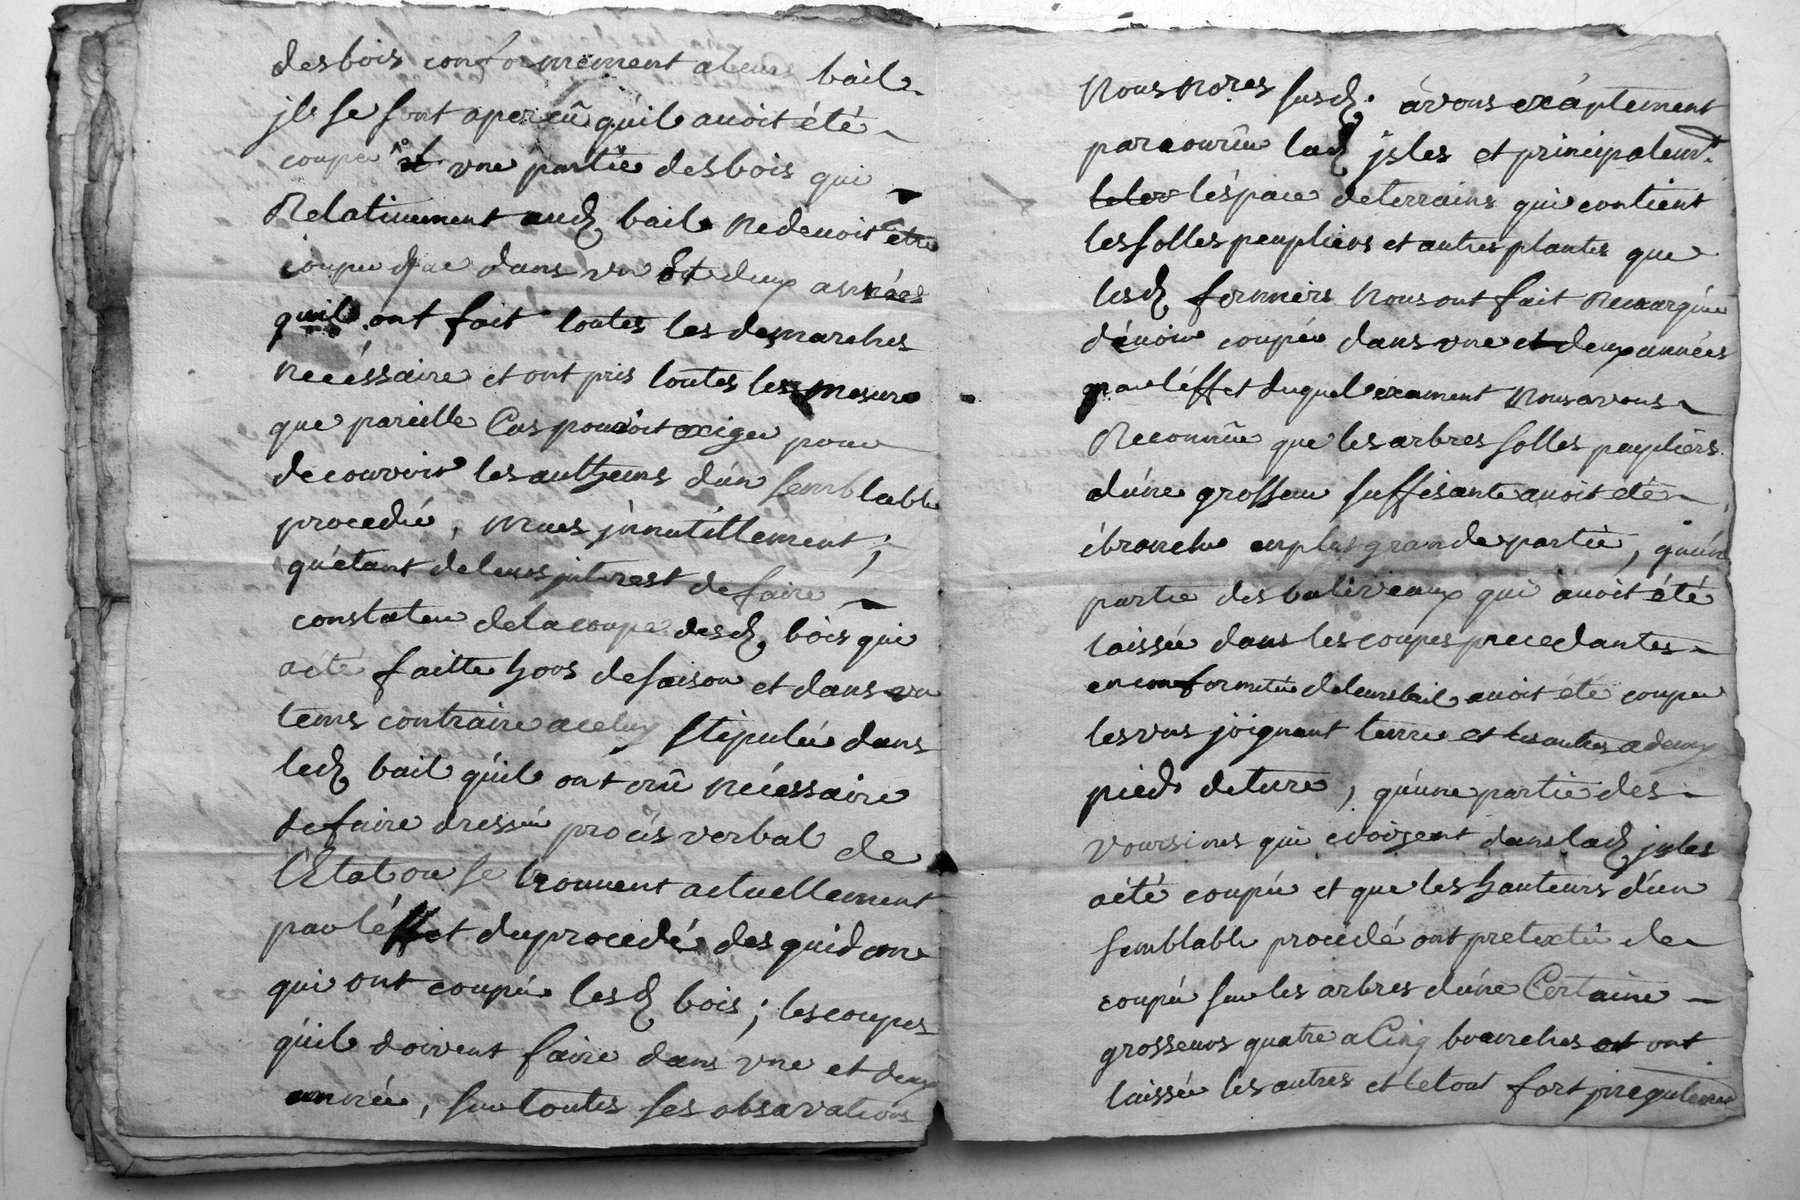 des bois conformement a leurs bail
jls se sont aperçû qu'il avoit été
coupé une partie des bois qui
Relativement aud. bail ne devoit être
coupée que dans un et deux années
qu'ils ont fait toutes les demarches
nécéssaire et ont pris toutes les mesure
que pareille Cas pouvoit exiger pour
decouvrir les autheurs d'un semblable
procedé, mais jnnutillement ;
qu'étant de leurs jnterest de faire
constater de la coupe desd. bois qui
a été faitte hors de saison et dans un
tems contraire a celuy stipulée dans
led. bail qu'ils ont crû nécéssaire
de faire dressér procés verbal de
l'Etat ou se trouvent actuellement
par l'éffet du procedé des quidame
qui ont coupée lesd. bois ; les coupes
qu'il doivent faire dans une et deux
année, sur toutes ses obsarvations
Nous Nores susd. avons exáptement
parcourûe lad. jsles et principalemt.
l'éspace de terrains qui contient
les solles peupliers et autres plantes que
lesd. fermiers Nous ont fait Remarquée
d'évoir coupée dans une et deux années
par l'éffet duquel exament Nous avons
Reconnûe que les arbres solles peupliérs
d'úne grosseur suffisante avoit été
ébranche en plus grande partie, qu'ún
partie des baliveaux qui avoit été
laissée dans les coupes precedantes
en conformitée de leurs bail avoit été coupée
les uns joignant terre et les autres a deux
pieds de terre, qu'úne partie des
voursines qui croissent dans lad. jsles
a été coupée et que les hauteurs d'un
semblable procédé ont pretexté de
coupée sur les arbres d'úne Certaine
grosseurs quatre a Cinq branches ont
laissée les autres et le tout fort jrregulierem